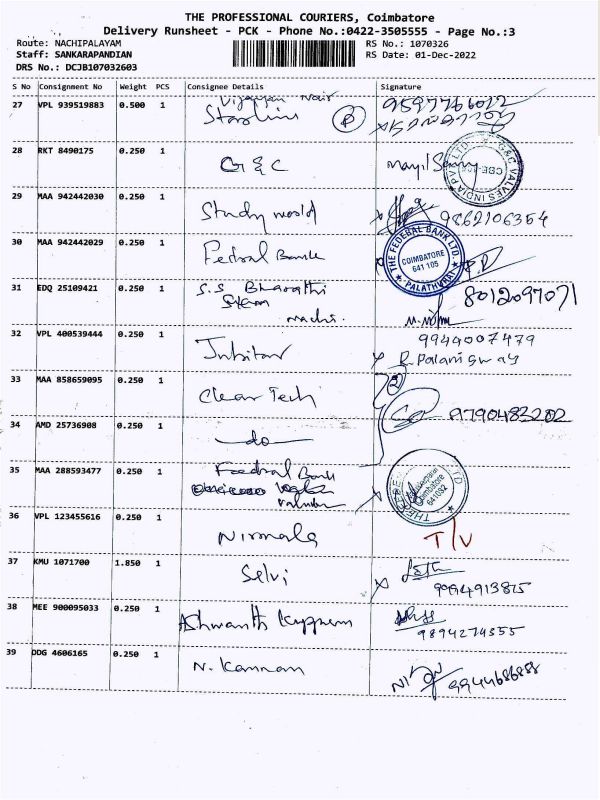 THE PROFESSIONAL COURIERS, Coimbatore
Delivery Runsheet - PCK - Phone No.:0422-3505555 - Page No.:3
Route: NACHIPALAYAM RS No.: 1070326
Staff: SANKARAPANDIAN RS Date: 01-Dec-2022
DRS No.: DCJB107032603
S No Consignment No Weight PCS Consignee Details Signature
27 VPL 939519883 0.500 1 Vijayan Nair 9597766022
28 RKT 8490175 0.250 1 G & C
G&C VALVES INDIA PVT LTD
29 MAA 942442030 0.250 1 Study world 9862106354
30 MAA 942442029 0.250 1 Fedral Bank
THE FEDERAL BANK LTD.
COIMBATORE
641 105
PALATHURAI
31 EDQ 25109421 0.250 1 S.S Bharathi 8012097071
machi.
32 VPL 400539444 0.250 1 9944007479
R. Palani Sway
33 MAA 858659095 0.250 1 Clear Tech 2
9790483202
34 AMD 25736908 0.250 1 do
35 MAA 288593477 0.250 1 Feedral Bank
Coimbatore
36 VPL 123455616 0.250 1 Nirmala T/V
37 KMU 1071700 1.850 1 Selvi
9994913825
38 MEE 900095033 0.250 1 Ashwanth
9894274355
39 DDG 4606165 0.250 1 N. Kannan 9944686888